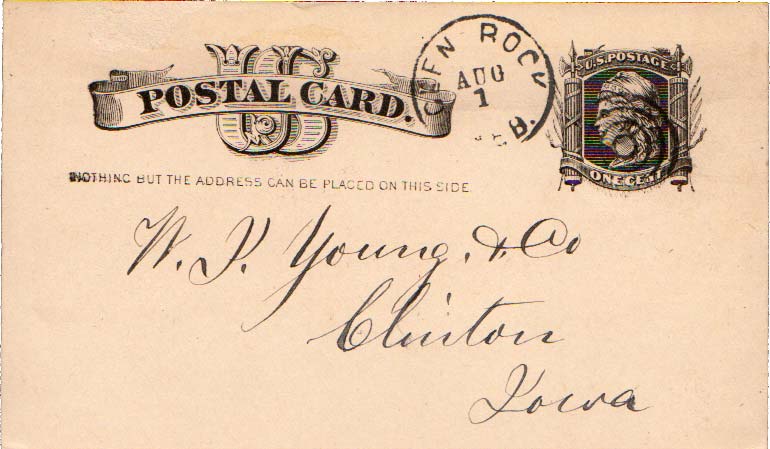 US
POSTAL CARD.
GLEN ROCK
AUG
1
EB.
U.S. POSTAGE
ONE CENT
NOTHING BUT THE ADDRESS CAN BE PLACED ON THIS SIDE.
W. J. Young, & Co
Clinton
Iowa